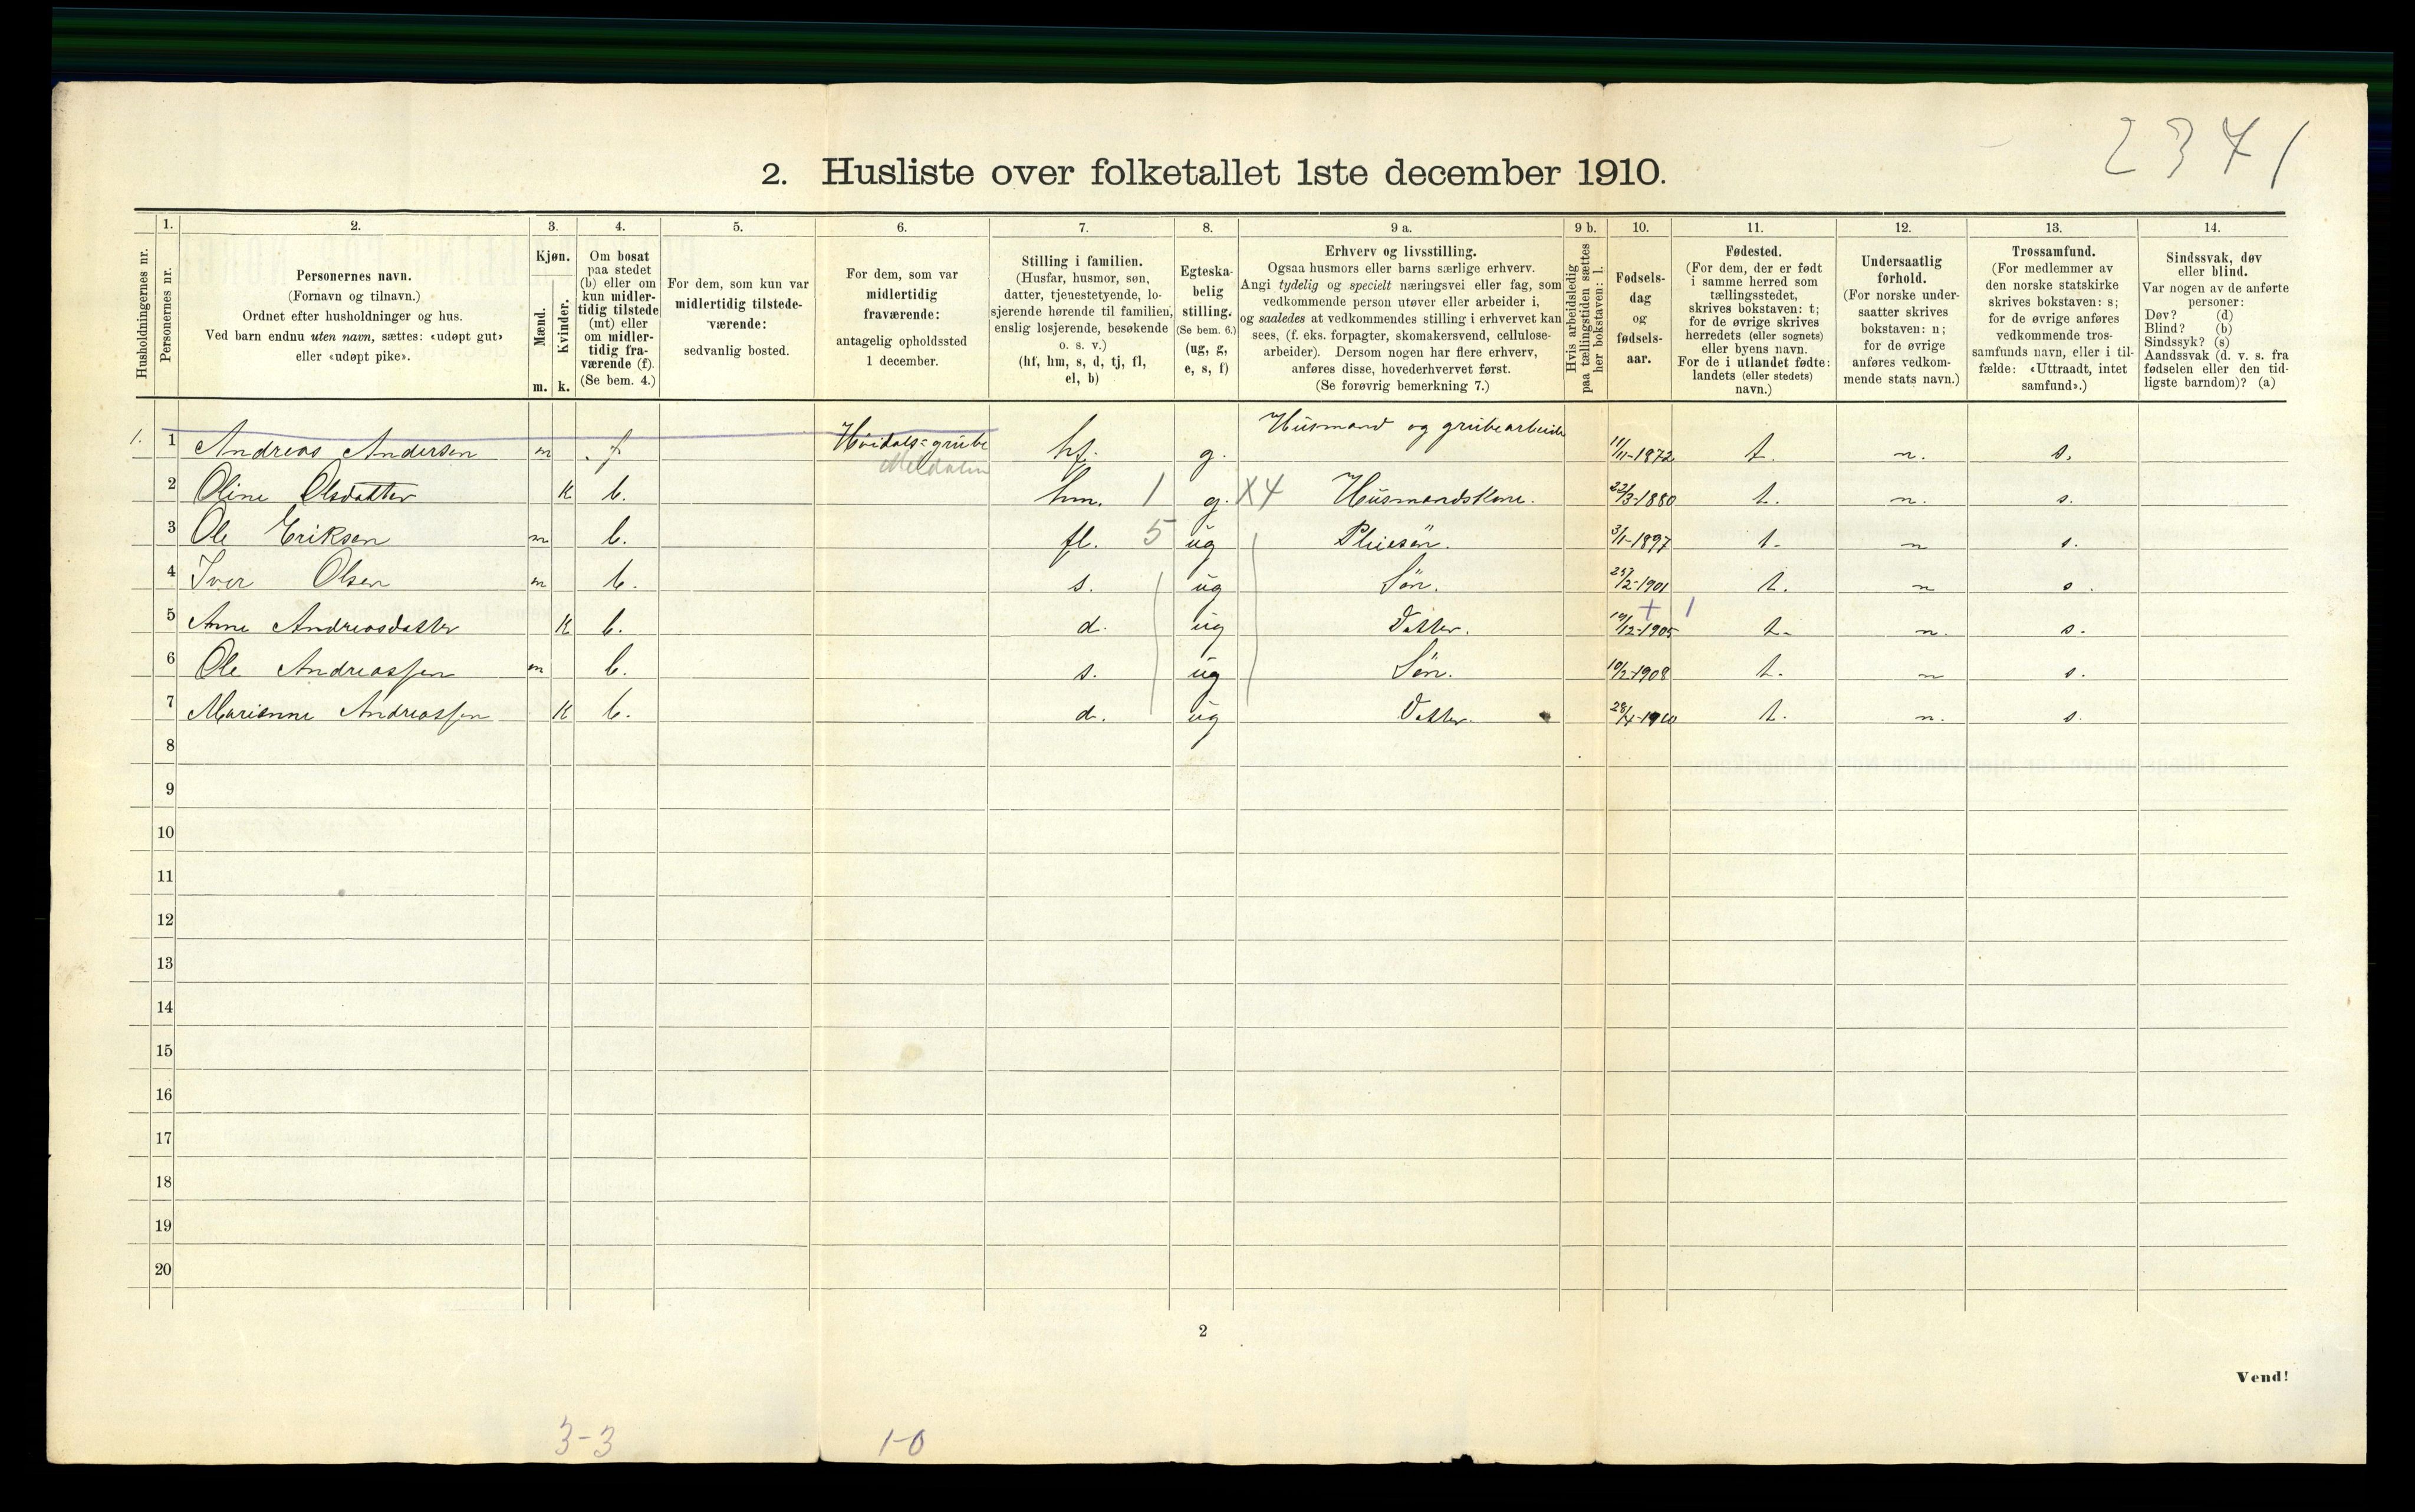 2341
2. Husliste over folketallet 1ste december 1910.
Husholdningernes nr.
1. Personernes nr.
2. Personernes navn.
(Fornavn og tilnavn.)
Ordnet efter husholdninger og hus.
Ved barn endnu uten navn, sættes: «udøpt gut»
eller «udøpt pike».
3. Kjøn.
Mænd. m.
Kvinder. k.
4. Om bosat
paa stedet
(b) eller om
kun midler-
tidig tilstede
(mt) eller
om midler-
tidig fra-
værende (f).
(Se bem. 4.)
5. For dem, som kun var
midlertidig tilstede-
værende:
sedvanlig bosted.
6. For dem, som var
midlertidig
fraværende:
antagelig opholdssted
1 december.
7. Stilling i familien.
(Husfar, husmor, søn,
datter, tjenestetyende, lo-
sjerende hørende til familien,
enslig losjerende, besøkende
o. s. v.)
(hf, hm, s, d, tj, fl,
el, b)
8. Egteska-
belig
stilling.
(Se bem. 6.)
(ug, g,
e, s, f)
9 a. Erhverv og livsstilling.
Ogsaa husmors eller barns særlige erhverv.
Angi tydelig og specielt næringsvei eller fag, som
vedkommende person utøver eller arbeider i,
og saaledes at vedkommendes stilling i erhvervet kan
sees, (f. eks. forpagter, skomakersvend, cellulose-
arbeider). Dersom nogen har flere erhverv,
anføres disse, hovederhvervet først.
(Se forøvrig bemerkning 7.)
9 b. Hvis arbeidsledig
paa tællingstiden sættes
her bokstaven: l.
10. Fødsels-
dag
og
fødsels-
aar.
11. Fødested.
(For dem, der er født
i samme herred som
tællingsstedet,
skrives bokstaven: t;
for de øvrige skrives
herredets (eller sognets)
eller byens navn.
For de i utlandet fødte:
landets (eller stedets)
navn.)
12. Undersaatlig
forhold.
(For norske under-
saatter skrives
bokstaven: n;
for de øvrige
anføres vedkom-
mende stats navn.)
13. Trossamfund.
(For medlemmer av
den norske statskirke
skrives bokstaven: s;
for de øvrige anføres
vedkommende tros-
samfunds navn, eller i til-
fælde: «Uttraadt, intet
samfund».)
14. Sindssvak, døv
eller blind.
Var nogen av de anførte
personer:
Døv? (d)
Blind? (b)
Sindssyk? (s)
Aandssvak (d. v. s. fra
fødselen eller den tid-
ligste barndom)? (a)
1. 1 Andreas Andersen m f Hoidals=grube Meldalen hf. g. Husmand og grubearbeide 11/11-1872 t. n. s.
2 Oline Olsdatter k b. hm. 1 g. X4 Husmandskone. 22/3-1880 t. n. s.
3 Ole Eriksen m b. fl. 5 ug Pleiesön. 3/1-1897 t. n s.
4 Iver Olsen m b. s. ug Sön. 2-1901 t. n s.
5 Anne Andreasdatter k b. d. ug Datter. 12-1905 + 1 t. n. s.
6 Ole Andreassen m b. s. ug Sön. 10/2-1908 t. n s.
7 Marienne Andreassen k b. d. ug Datter. 28/4-1910 t. n. s.
8
9
10
11
12
13
14
15
16
17
18
19
20
2
Vend!
3-3 1-0